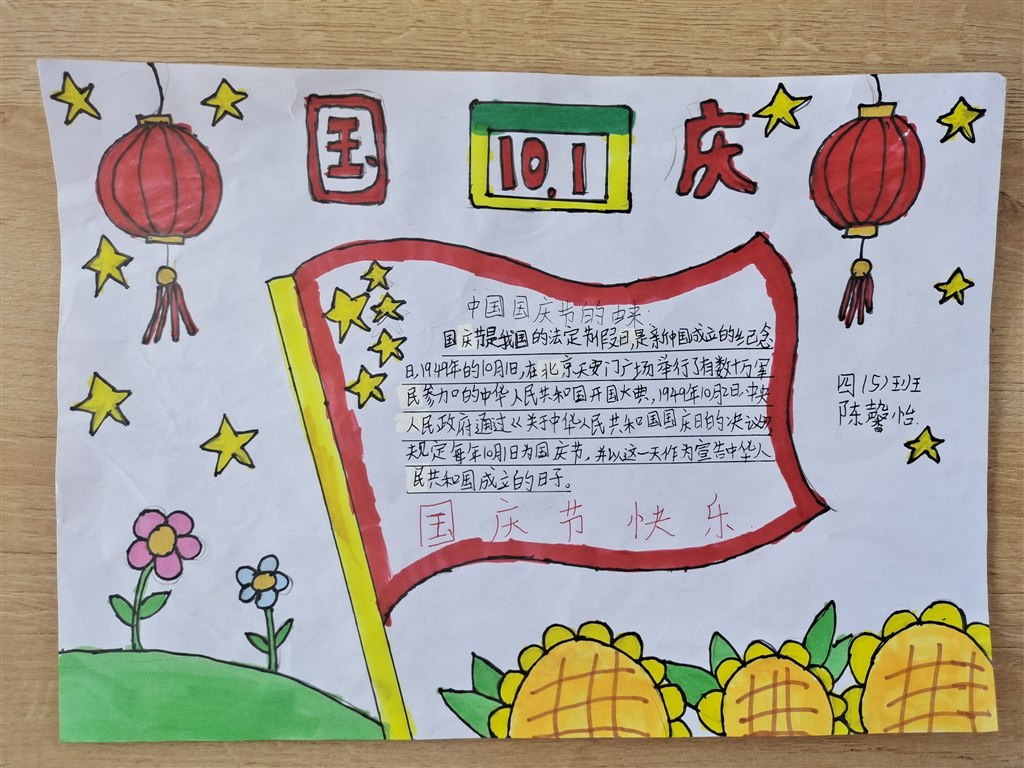 国 10.1 庆
中国国庆节的由来
国庆节是我国的法定节假日,是新中国成立的纪念
日,1949年的10月1日,在北京天安门广场举行了有数十万军
民参加的中华人民共和国开国大典,1949年10月2日,中央
人民政府通过《关于中华人民共和国国庆日的决议》
规定每年10月1日为国庆节,并以这一天作为宣告中华人
民共和国成立的日子。
国庆节快乐
四(5)班
陈馨怡